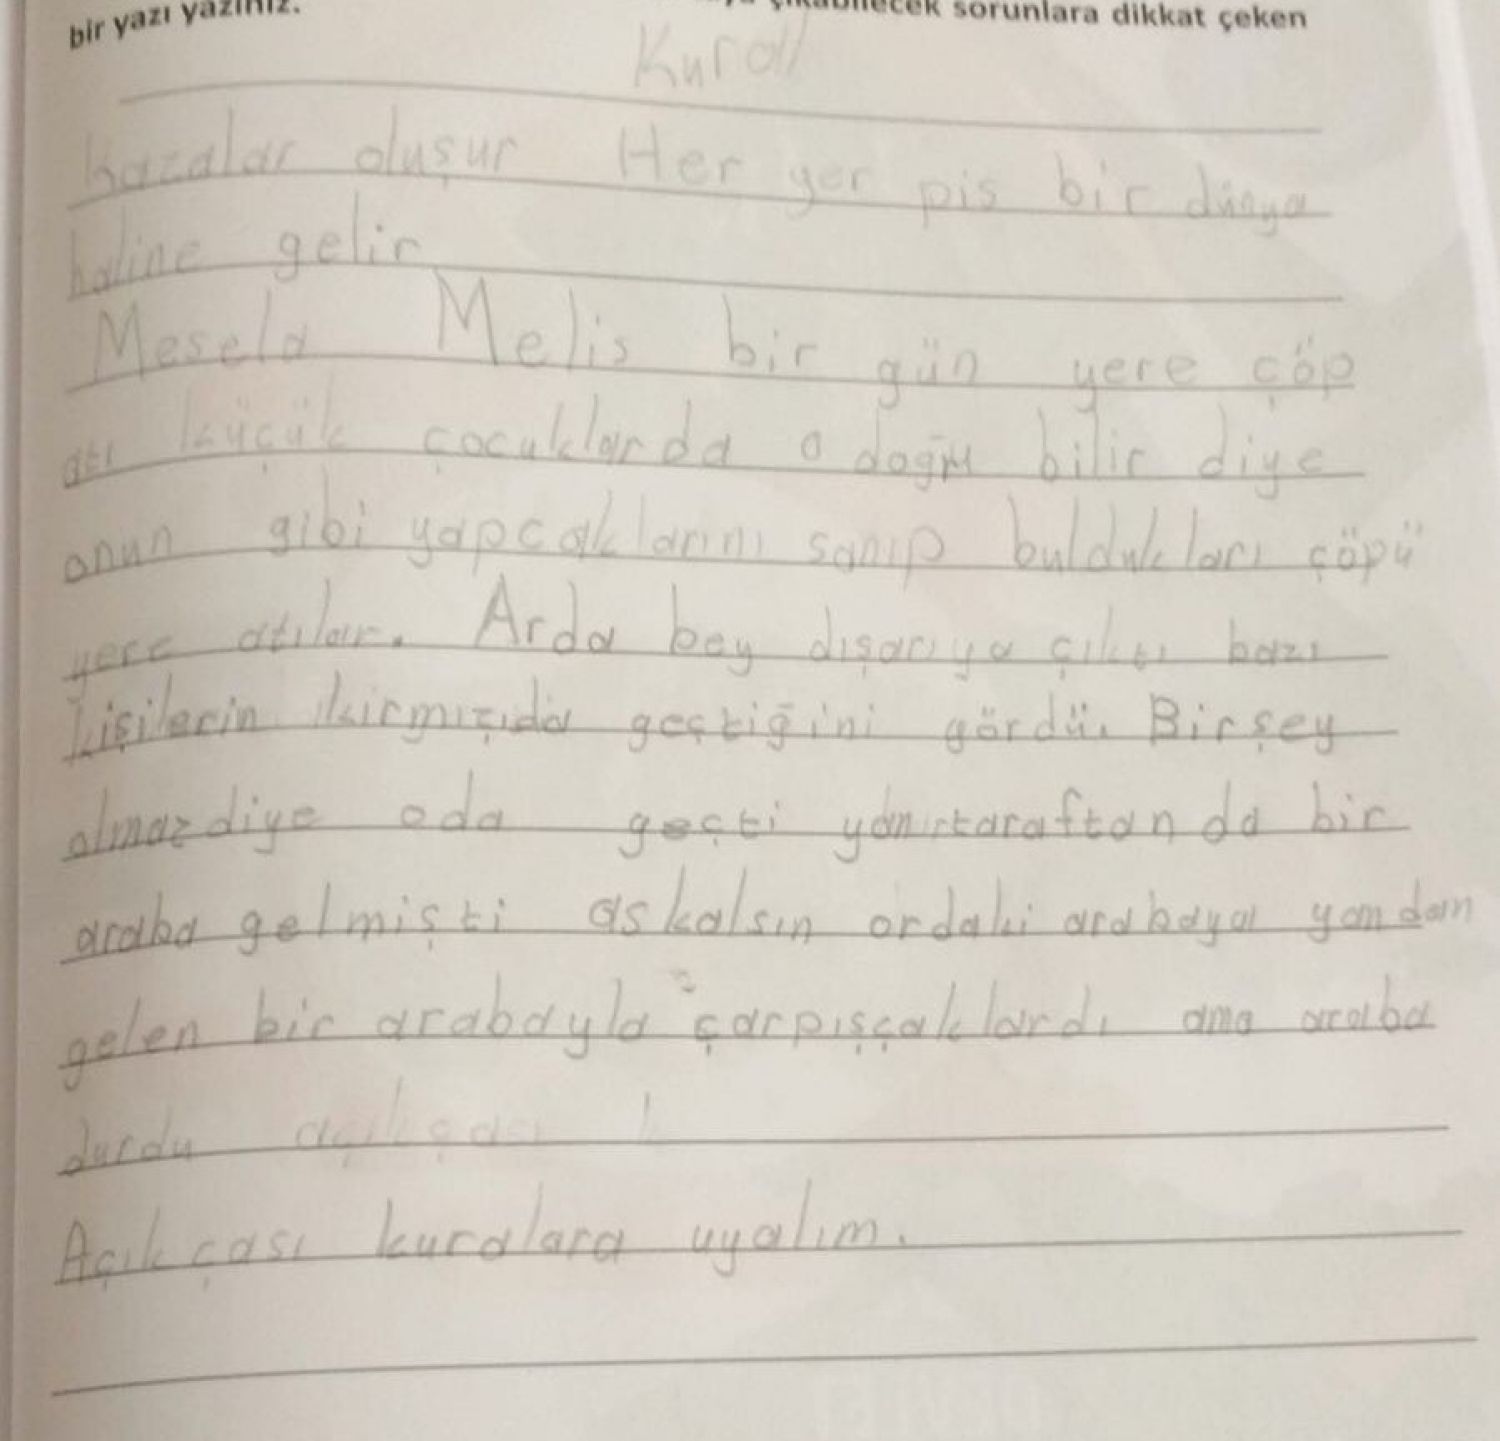 çıkabilecek sorunlara dikkat çeken
bir yazı yazınız.
Kural
kazalar oluşur Her yer pis bir dünya
haline gelir
Mesela Melis bir gün yere çöp
attı küçük çocuklarda o doğru bilir diye
onun gibi yapcaklarını sanıp buldukları çöpü
yere atılar. Arda bey dışarıya çıktı bazı
kişilerin kirmızıda geçtiğini gördü. Birşey
olmazdiye oda geçti yan taraftan da bir
araba gelmişti askalsın ordaki arabaya yandan
gelen bir arabayla çarpışçaklardı ama araba
durdu açıkçası k
Açıkçası kuralara uyalım.